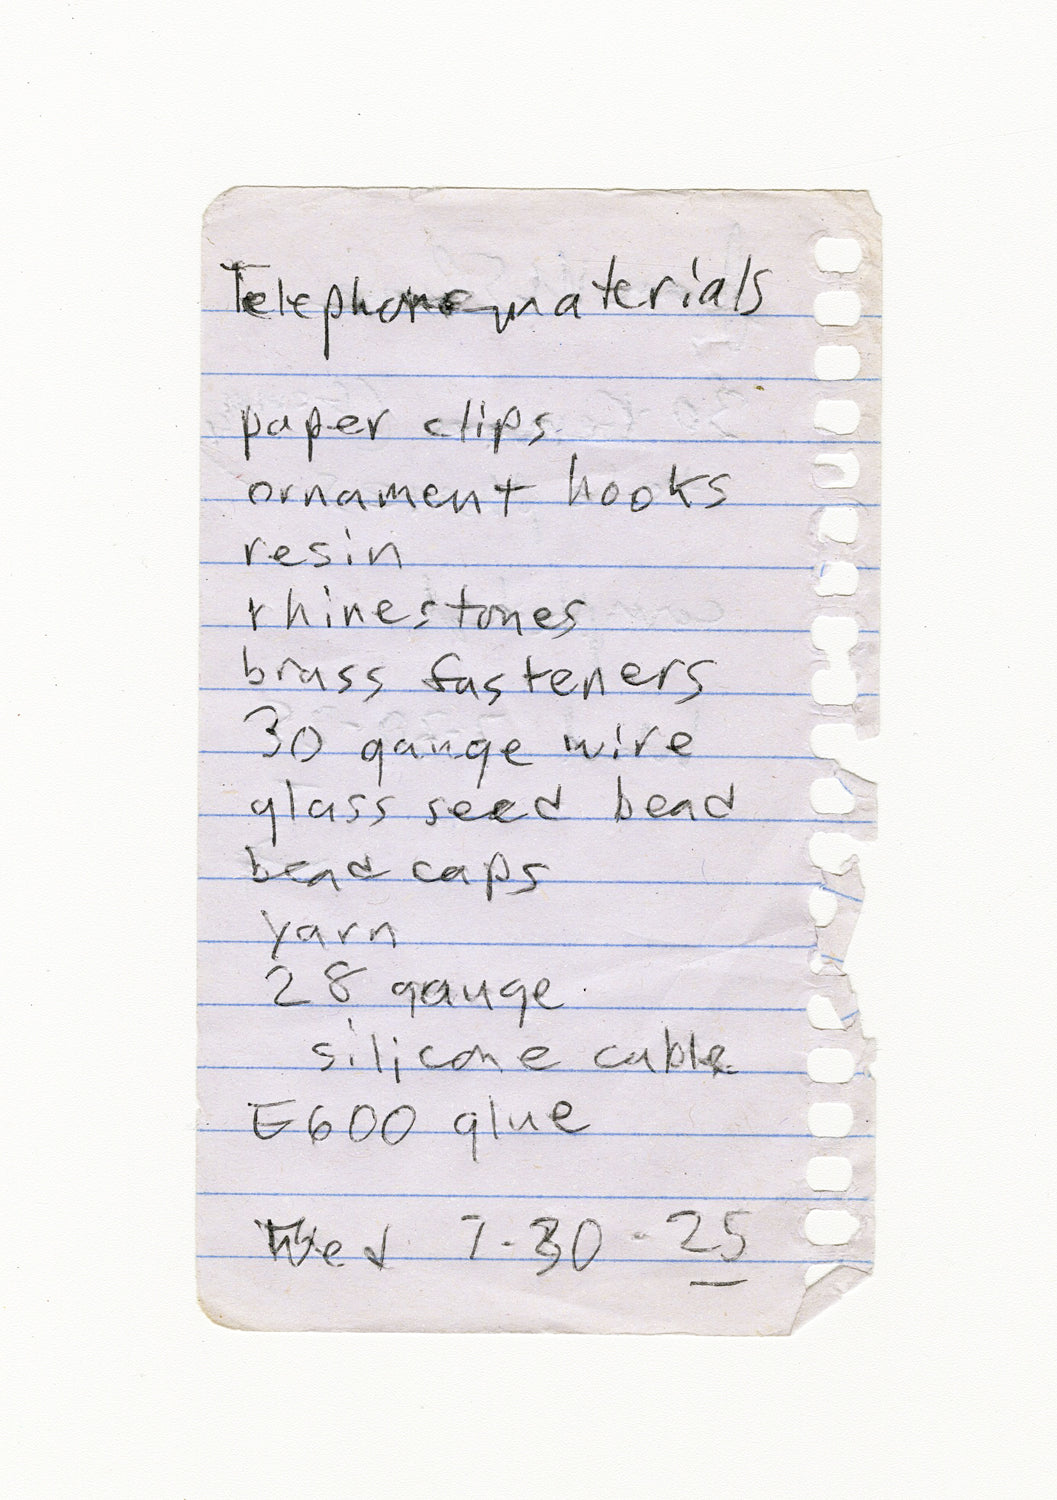 Telephone materials
paper clips
ornament hooks
resin
rhinestones
brass fasteners
30 gauge wire
glass seed bead
bead caps
yarn
28 gauge
silicone cable
E600 glue
Wed 7-30-25